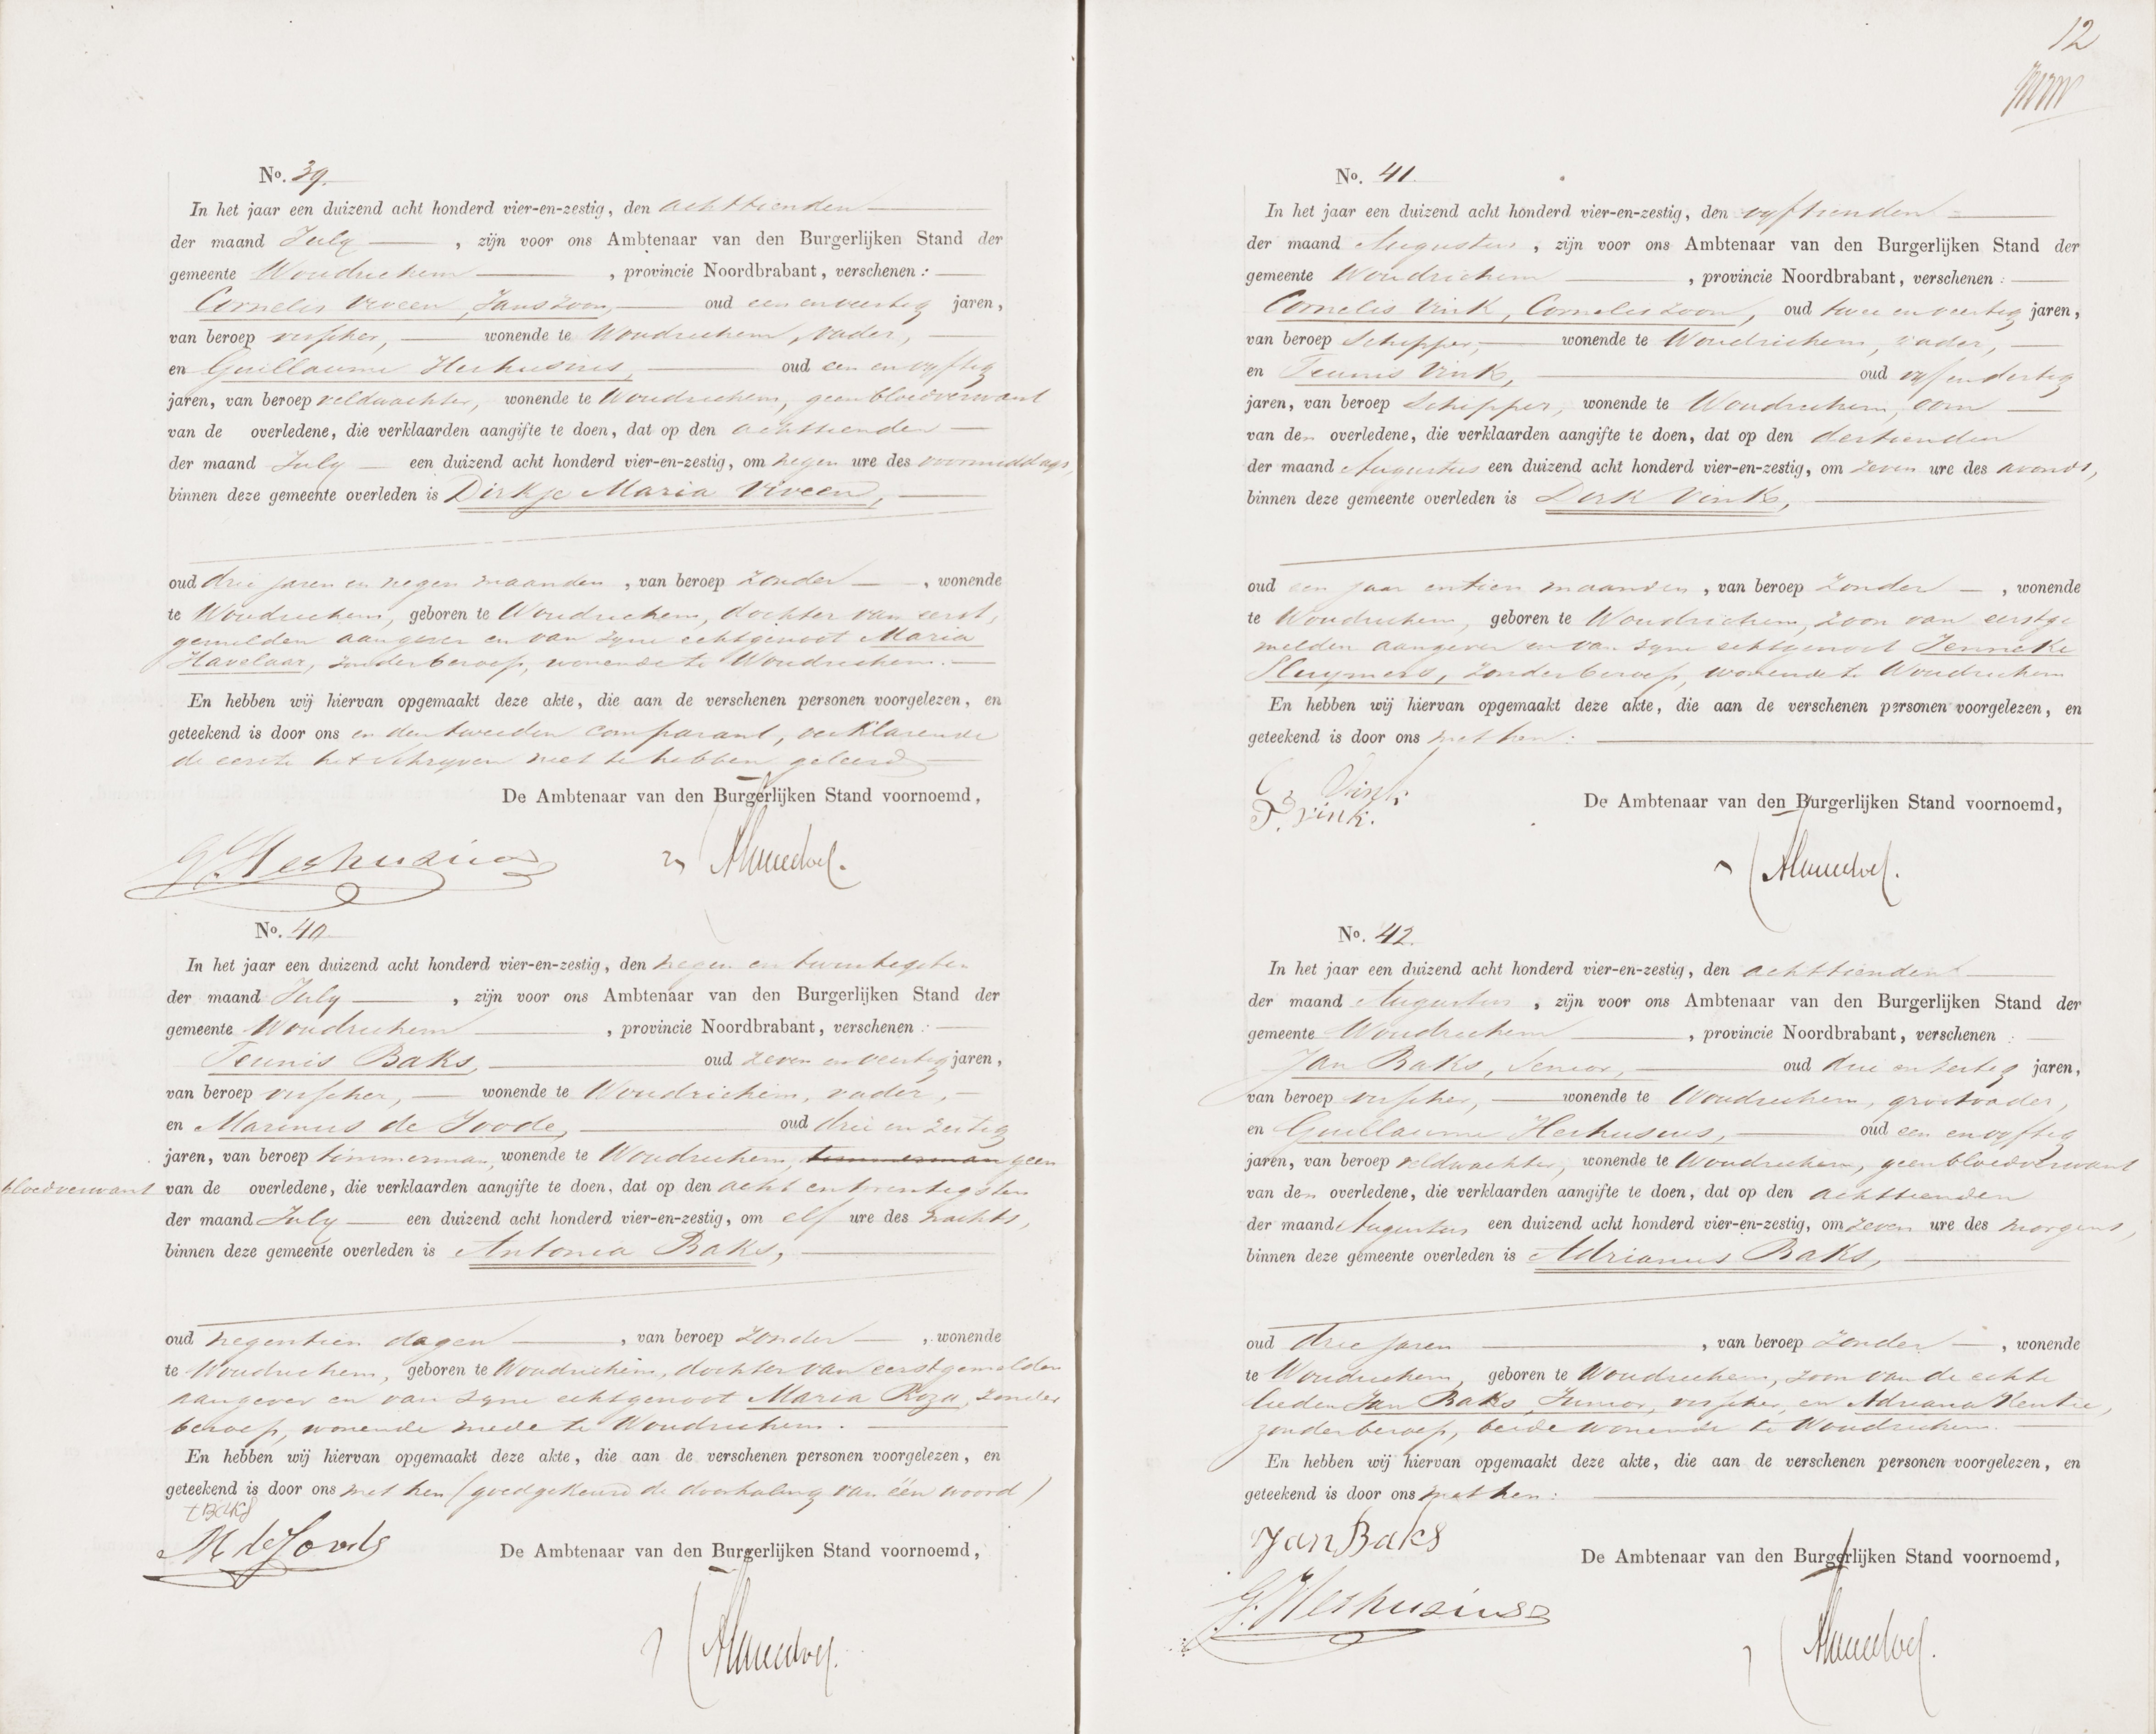 No. 39.
In het jaar een duizend acht honderd vier-en-zestig, den achttienden
der maand July, zijn voor ons Ambtenaar van den Burgerlijken Stand der
gemeente Woudrichem, provincie Noordbrabant, verschenen:
Cornelis Viveen, Janszoon, oud een en veertig jaren,
van beroep visscher, wonende te Woudrichem, vader,
en Guillaume Heshusius, oud een en vyftig
jaren, van beroep veldwachter, wonende te Woudrichem, geen bloedverwant
van de overledene, die verklaarden aangifte te doen, dat op den achttienden
der maand July een duizend acht honderd vier-en-zestig, om negen ure des voormiddags,
binnen deze gemeente overleden is Dirkje Maria Viveen,
oud drie jaren en negen maanden, van beroep zonder, wonende
te Woudrichem, geboren te Woudrichem, dochter van eerst,
gemelden aangever en van zyne echtgenoot Maria
Havelaar, zonder beroep, wonende te Woudrichem.
En hebben wij hiervan opgemaakt deze akte, die aan de verschenen personen voorgelezen, en
geteekend is door ons en den tweeden comparant, verklarende
de eerste het schryven niet te hebben geleerd
De Ambtenaar van den Burgerlijken Stand voornoemd,
G. Heshusius
No. 40
In het jaar een duizend acht honderd vier-en-zestig, den negen en twintigsten
der maand July, zijn voor ons Ambtenaar van den Burgerlijken Stand der
gemeente Woudrichem, provincie Noordbrabant, verschenen:
Teunis Baks, oud zeven en veertig jaren,
van beroep visscher, wonende te Woudrichem, vader,
en Marinus de Joode, oud drie en zestig
jaren, van beroep timmerman, wonende te Woudrichem, timmerman geen
bloedverwant van de overledene, die verklaarden aangifte te doen, dat op den acht en twintigsten
der maand July een duizend acht honderd vier-en-zestig, om elf ure des nachts,
binnen deze gemeente overleden is Antonia Baks,
oud negentien dagen, van beroep zonder, wonende
te Woudrichem, geboren te Woudrichem, dochter van eerstgemelden
aangever en van zyne echtgenoot Maria Roza, zonder
beroep, wonende mede te Woudrichem.
En hebben wij hiervan opgemaakt deze akte, die aan de verschenen personen voorgelezen, en
geteekend is door ons met hen (goedgekeurd de doorhaling van één woord)
t Baks
M de Joode
De Ambtenaar van den Burgerlijken Stand voornoemd,
12
No. 41
In het jaar een duizend acht honderd vier-en-zestig, den vyftienden
der maand Augustus, zijn voor ons Ambtenaar van den Burgerlijken Stand der
gemeente Woudrichem, provincie Noordbrabant, verschenen:
Cornelis Vink, Corneliszoon, oud twee en veertig jaren,
van beroep Schipper, wonende te Woudrichem, vader,
en Teunis Vink, oud vyf en dertig
jaren, van beroep Schipper, wonende te Woudrichem, oom
van den overledene, die verklaarden aangifte te doen, dat op den dertienden
der maand Augustus een duizend acht honderd vier-en-zestig, om zeven ure des avonds,
binnen deze gemeente overleden is Dirk Vink,
oud een jaar en tien maanden, van beroep zonder, wonende
te Woudrichem, geboren te Woudrichem, zoon van eerstge
melden aangever en van zyne echtgenoot Jenneke
Sluymers, zonder beroep, wonende te Woudrichem
En hebben wij hiervan opgemaakt deze akte, die aan de verschenen personen voorgelezen, en
geteekend is door ons met hen:
C. Vink
T. Vink.
De Ambtenaar van den Burgerlijken Stand voornoemd,
No. 42.
In het jaar een duizend acht honderd vier-en-zestig, den achttienden
der maand Augustus, zijn voor ons Ambtenaar van den Burgerlijken Stand der
gemeente Woudrichem, provincie Noordbrabant, verschenen:
Jan Baks, Senior, oud drie en zestig jaren,
van beroep visscher, wonende te Woudrichem, grootvader,
en Guillaume Heshusius, oud een en vyftig
jaren, van beroep veldwachter, wonende te Woudrichem, geen bloedverwant
van den overledene, die verklaarden aangifte te doen, dat op den achttienden
der maand Augustus een duizend acht honderd vier-en-zestig, om zeven ure des morgens,
binnen deze gemeente overleden is Adrianus Baks,
oud drie jaren, van beroep zonder, wonende
te Woudrichem, geboren te Woudrichem, zoon van de echte
lieden Jan Baks, Junior, visscher, en Adriana Kentie,
zonder beroep, beide wonende te Woudrichem.
En hebben wij hiervan opgemaakt deze akte, die aan de verschenen personen voorgelezen, en
geteekend is door ons met hen:
Jan Baks
G. Heshusius
De Ambtenaar van den Burgerlijken Stand voornoemd,